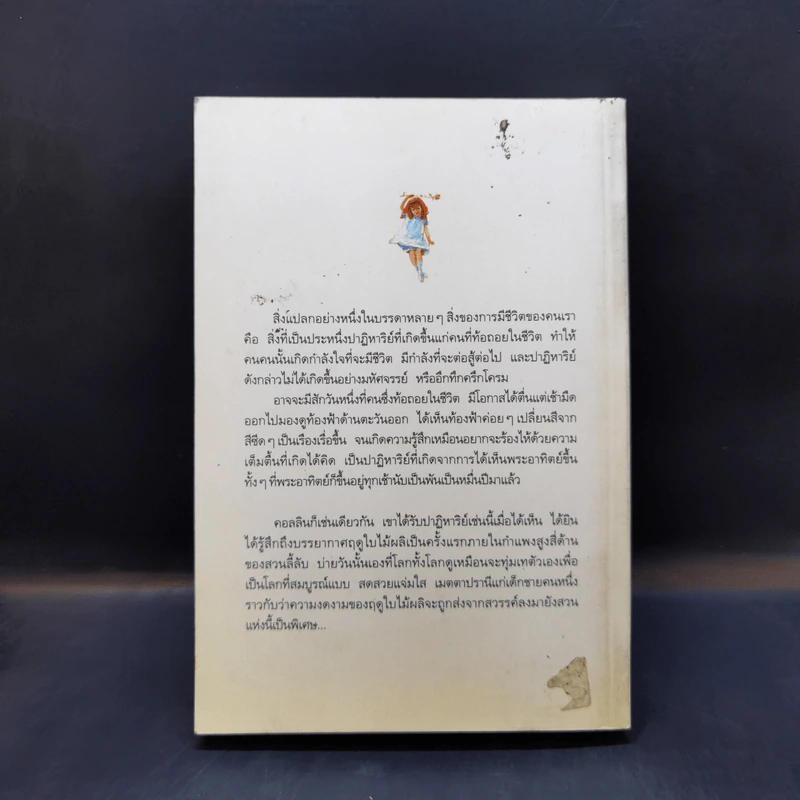 สิ่งแปลกอย่างหนึ่งในบรรดาหลาย ๆ สิ่งของการมีชีวิตของคนเรา
คือ สิ่งที่เป็นประหนึ่งปาฏิหาริย์ที่เกิดขึ้นแก่คนที่ท้อถอยในชีวิต ทำให้
คนคนนั้นเกิดกำลังใจที่จะมีชีวิต มีกำลังที่จะต่อสู้ต่อไป และปาฏิหาริย์
ดังกล่าวไม่ได้เกิดขึ้นอย่างมหัศจรรย์ หรืออึกทึกครึกโครม
อาจจะมีสักวันหนึ่งที่คนซึ่งท้อถอยในชีวิต มีโอกาสได้ตื่นแต่เช้ามืด
ออกไปมองดูท้องฟ้าด้านตะวันออก ได้เห็นท้องฟ้าค่อย ๆ เปลี่ยนสีจาก
สีซีด ๆ เป็นเรืองเรื่อขึ้น จนเกิดความรู้สึกเหมือนอยากจะร้องไห้ด้วยความ
เต็มตื้นที่เกิดได้คิด เป็นปาฏิหาริย์ที่เกิดจากการได้เห็นพระอาทิตย์ขึ้น
ทั้ง ๆ ที่พระอาทิตย์ก็ขึ้นอยู่ทุกเช้านับเป็นพันเป็นหมื่นปีมาแล้ว
คอลลินก็เช่นเดียวกัน เขาได้รับปาฏิหาริย์เช่นนี้เมื่อได้เห็น ได้ยิน
ได้รู้สึกถึงบรรยากาศฤดูใบไม้ผลิเป็นครั้งแรกภายในกำแพงสูงสี่ด้าน
ของสวนลี้ลับ บ่ายวันนั้นเองที่โลกทั้งโลกดูเหมือนจะทุ่มเทตัวเองเพื่อ
เป็นโลกที่สมบูรณ์แบบ สดสวยแจ่มใส เมตตาปรานีแก่เด็กชายคนหนึ่ง
ราวกับว่าความงดงามของฤดูใบไม้ผลิจะถูกส่งจากสวรรค์ลงมายังสวน
แห่งนี้เป็นพิเศษ...